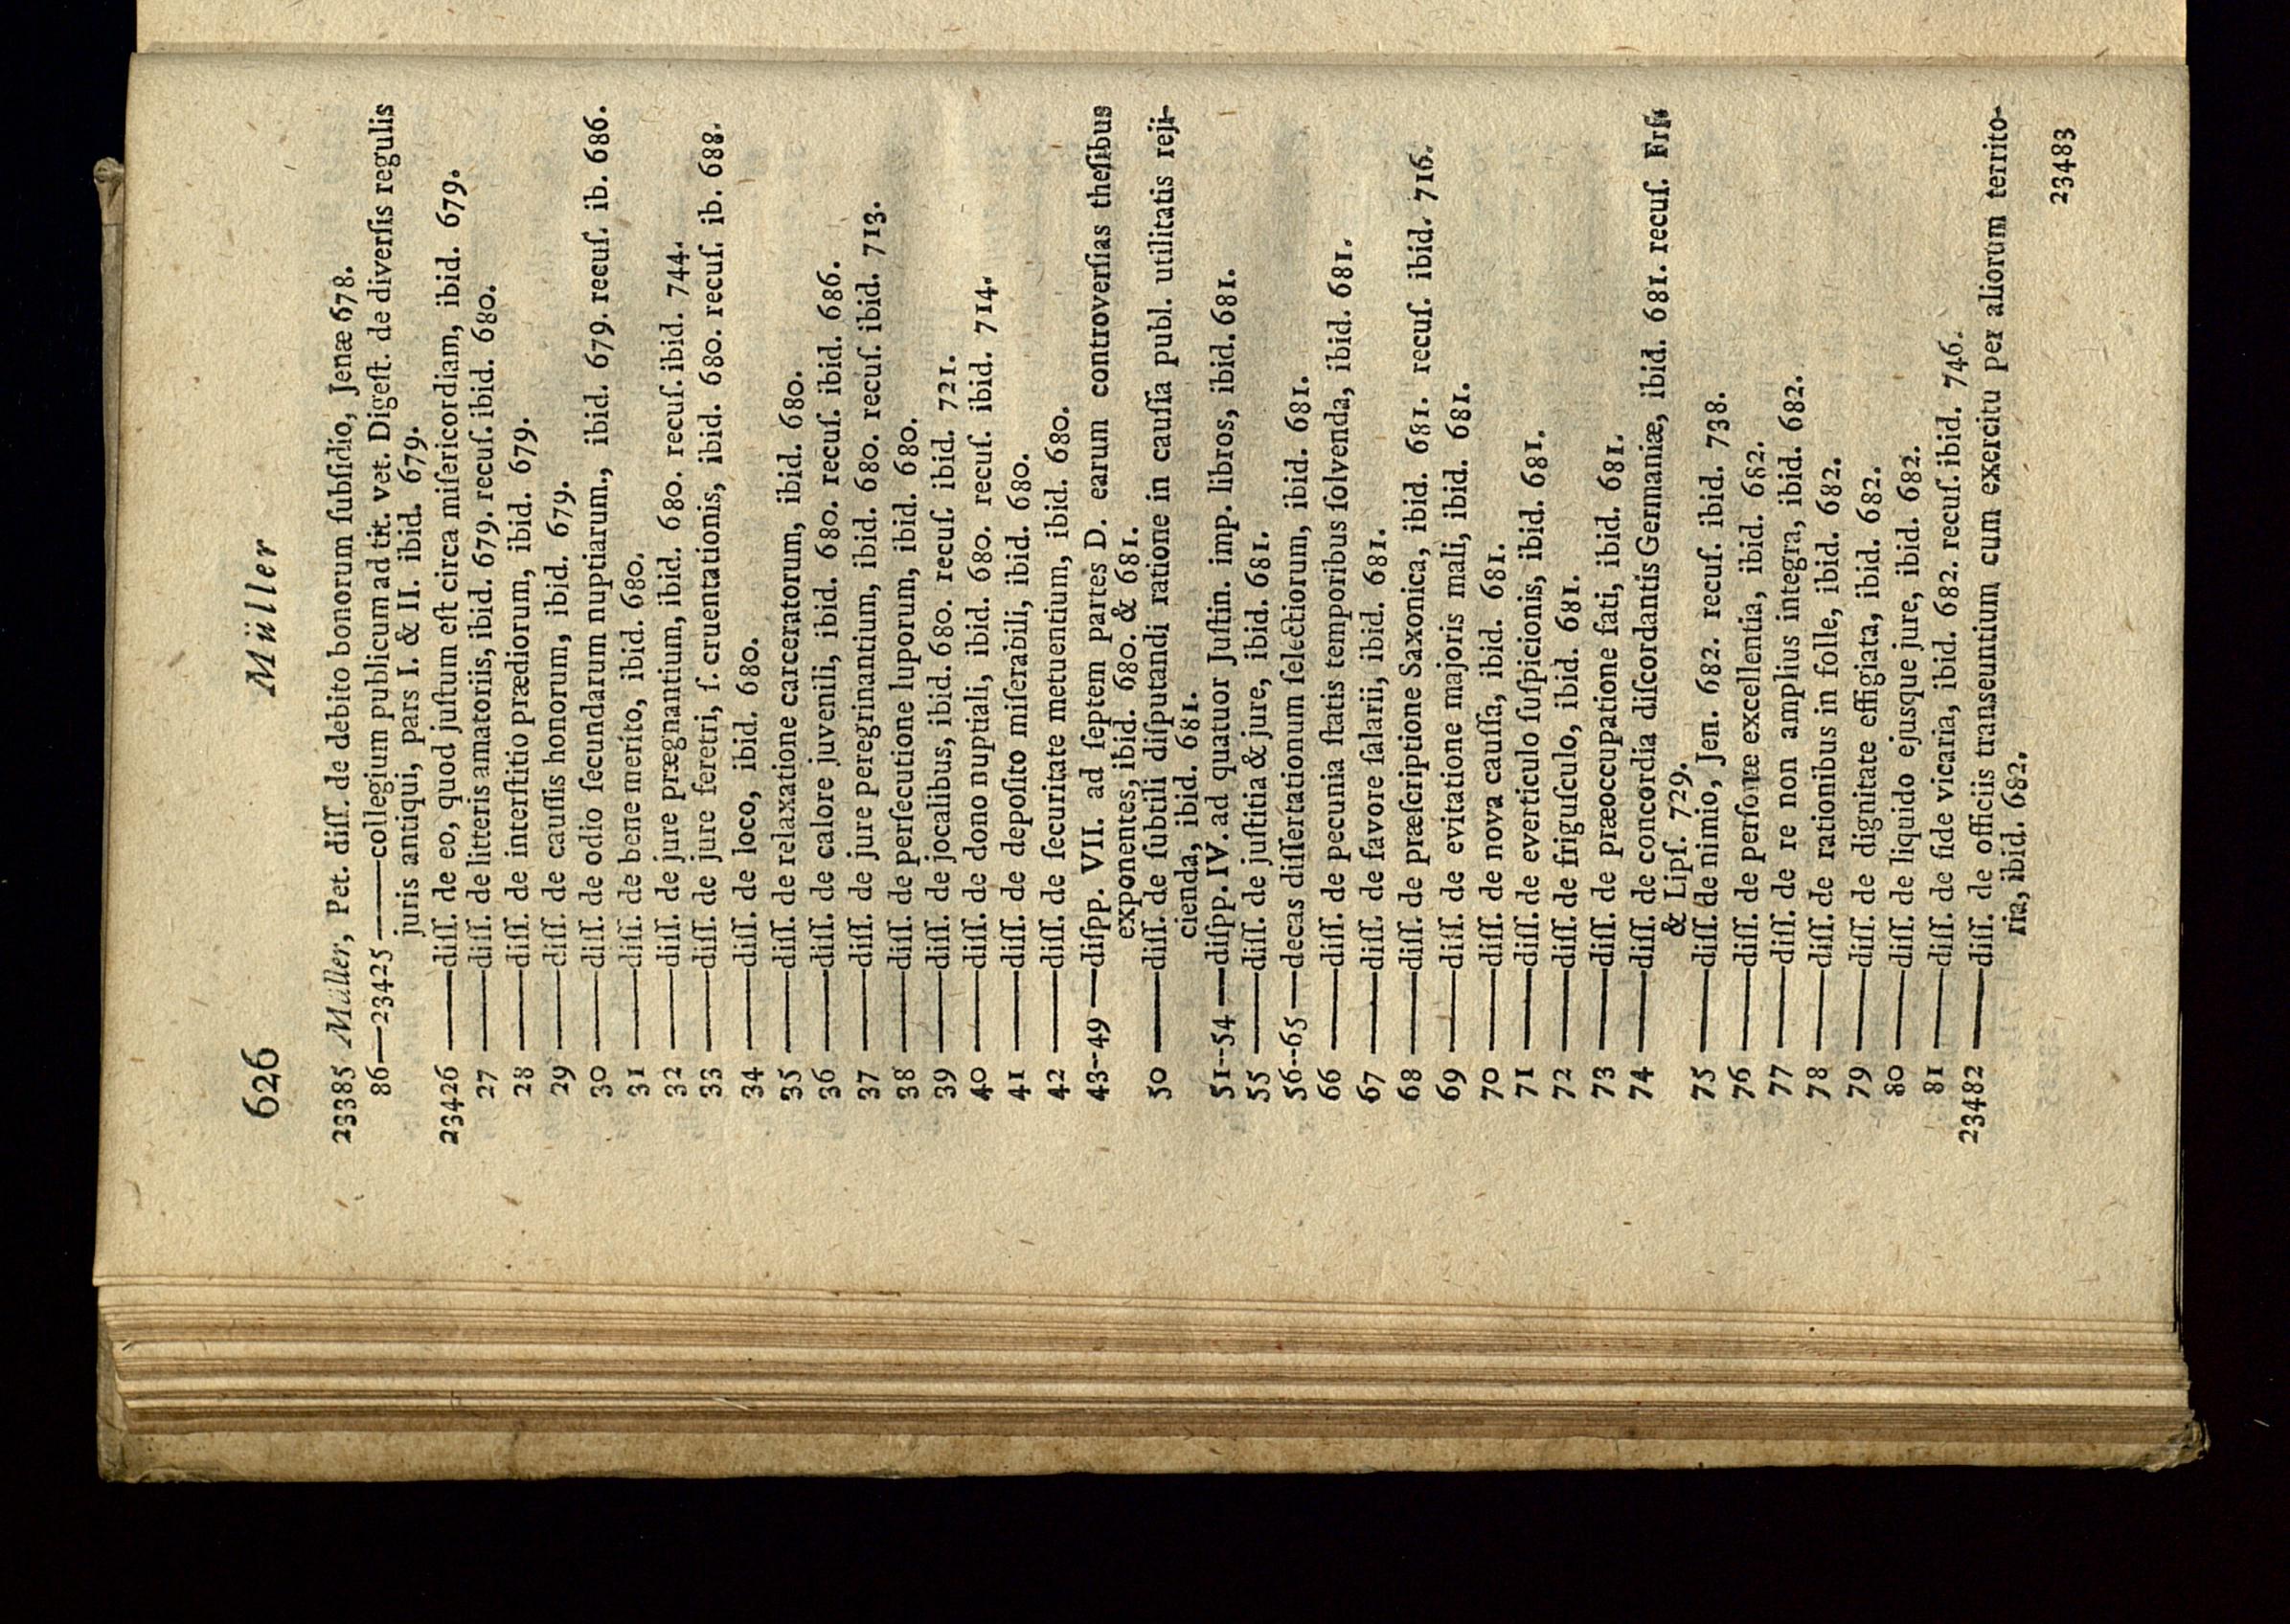 626 Müller
23385 Müller, Pet. diſſ. de debito bonorum ſubſidio, Jenæ 678.
86—23425 ——collegium publicum ad tit. vet. Digeſt. de diverſis regulis
juris antiqui, pars I. & II. ibid. 679.
23426 ——diſſ. de eo, quod juſtum eſt circa miſericordiam, ibid. 679.
27 ——diſſ. de litteris amatoriis, ibid. 679. recuſ. ibid. 680.
28 ——diſſ. de interſtitio prædiorum, ibid. 679.
29 ——diſſ. de cauſſis honorum, ibid. 679.
30 ——diſſ. de odio ſecundarum nuptiarum., ibid. 679. recuſ. ib. 686.
31 ——diſſ. de bene merito, ibid. 680.
32 ——diſſ. de jure prægnantium, ibid. 680. recuſ. ibid. 744.
33 ——diſſ. de jure feretri, ſ. cruentationis, ibid. 680. recuſ. ib. 688.
34 ——diſſ. de loco, ibid. 680.
35 ——diſſ. de relaxatione carceratorum, ibid. 680.
36 ——diſſ. de calore juvenili, ibid. 680. recuſ. ibid. 686.
37 ——diſſ. de jure peregrinantium, ibid. 680. recuſ. ibid. 713.
38 ——diſſ. de perſecutione luporum, ibid. 680.
39 ——diſſ. de jocalibus, ibid. 680. recuſ. ibid. 721.
40 ——diſſ. de dono nuptiali, ibid. 680. recuſ. ibid. 714.
41 ——diſſ. de depoſito miſerabili, ibid. 680.
42 ——diſſ. de ſecuritate metuentium, ibid. 680.
43--49 —diſpp. VII. ad ſeptem partes D. earum controverſias theſibus
exponentes, ibid. 680. & 681.
50 ——diſſ. de ſubtili diſputandi ratione in cauſſa publ. utilitatis reji-
cienda, ibid. 681.
51--54 —diſpp. IV. ad quatuor Juſtin. imp. libros, ibid. 681.
55 ——diſſ. de juſtitia & jure, ibid. 681.
56--65 —decas diſſertationum ſelectiorum, ibid. 681.
66 ——diſſ. de pecunia ſtatis temporibus ſolvenda, ibid. 681.
67 ——diſſ. de favore ſalarii, ibid. 681.
68 ——diſſ. de præſcriptione Saxonica, ibid. 681. recuſ. ibid. 716.
69 ——diſſ. de evitatione majoris mali, ibid. 681.
70 ——diſſ. de nova cauſſa, ibid. 681.
71 ——diſſ. de everticulo ſuſpicionis, ibid. 681.
72 ——diſſ. de friguſculo, ibid. 681.
73 ——diſſ. de præoccupatione fati, ibid. 681.
74 ——diſſ. de concordia diſcordantis Germaniæ, ibid. 681. recuſ. Frft
& Lipſ. 729.
75 ——diſſ. de nimio, Jen. 682. recuſ. ibid. 738.
76 ——diſſ. de perſonæ excellentia, ibid. 682.
77 ——diſſ. de re non amplius integra, ibid. 682.
78 ——diſſ. de rationibus in folle, ibid. 682.
79 ——diſſ. de dignitate effigiata, ibid. 682.
80 ——diſſ. de liquido ejusque jure, ibid. 682.
81 ——diſſ. de fide vicaria, ibid. 682. recuſ. ibid. 746.
23482 ——diſſ. de officiis transeuntium cum exercitu per aliorum territo-
ria, ibid. 682.
23483